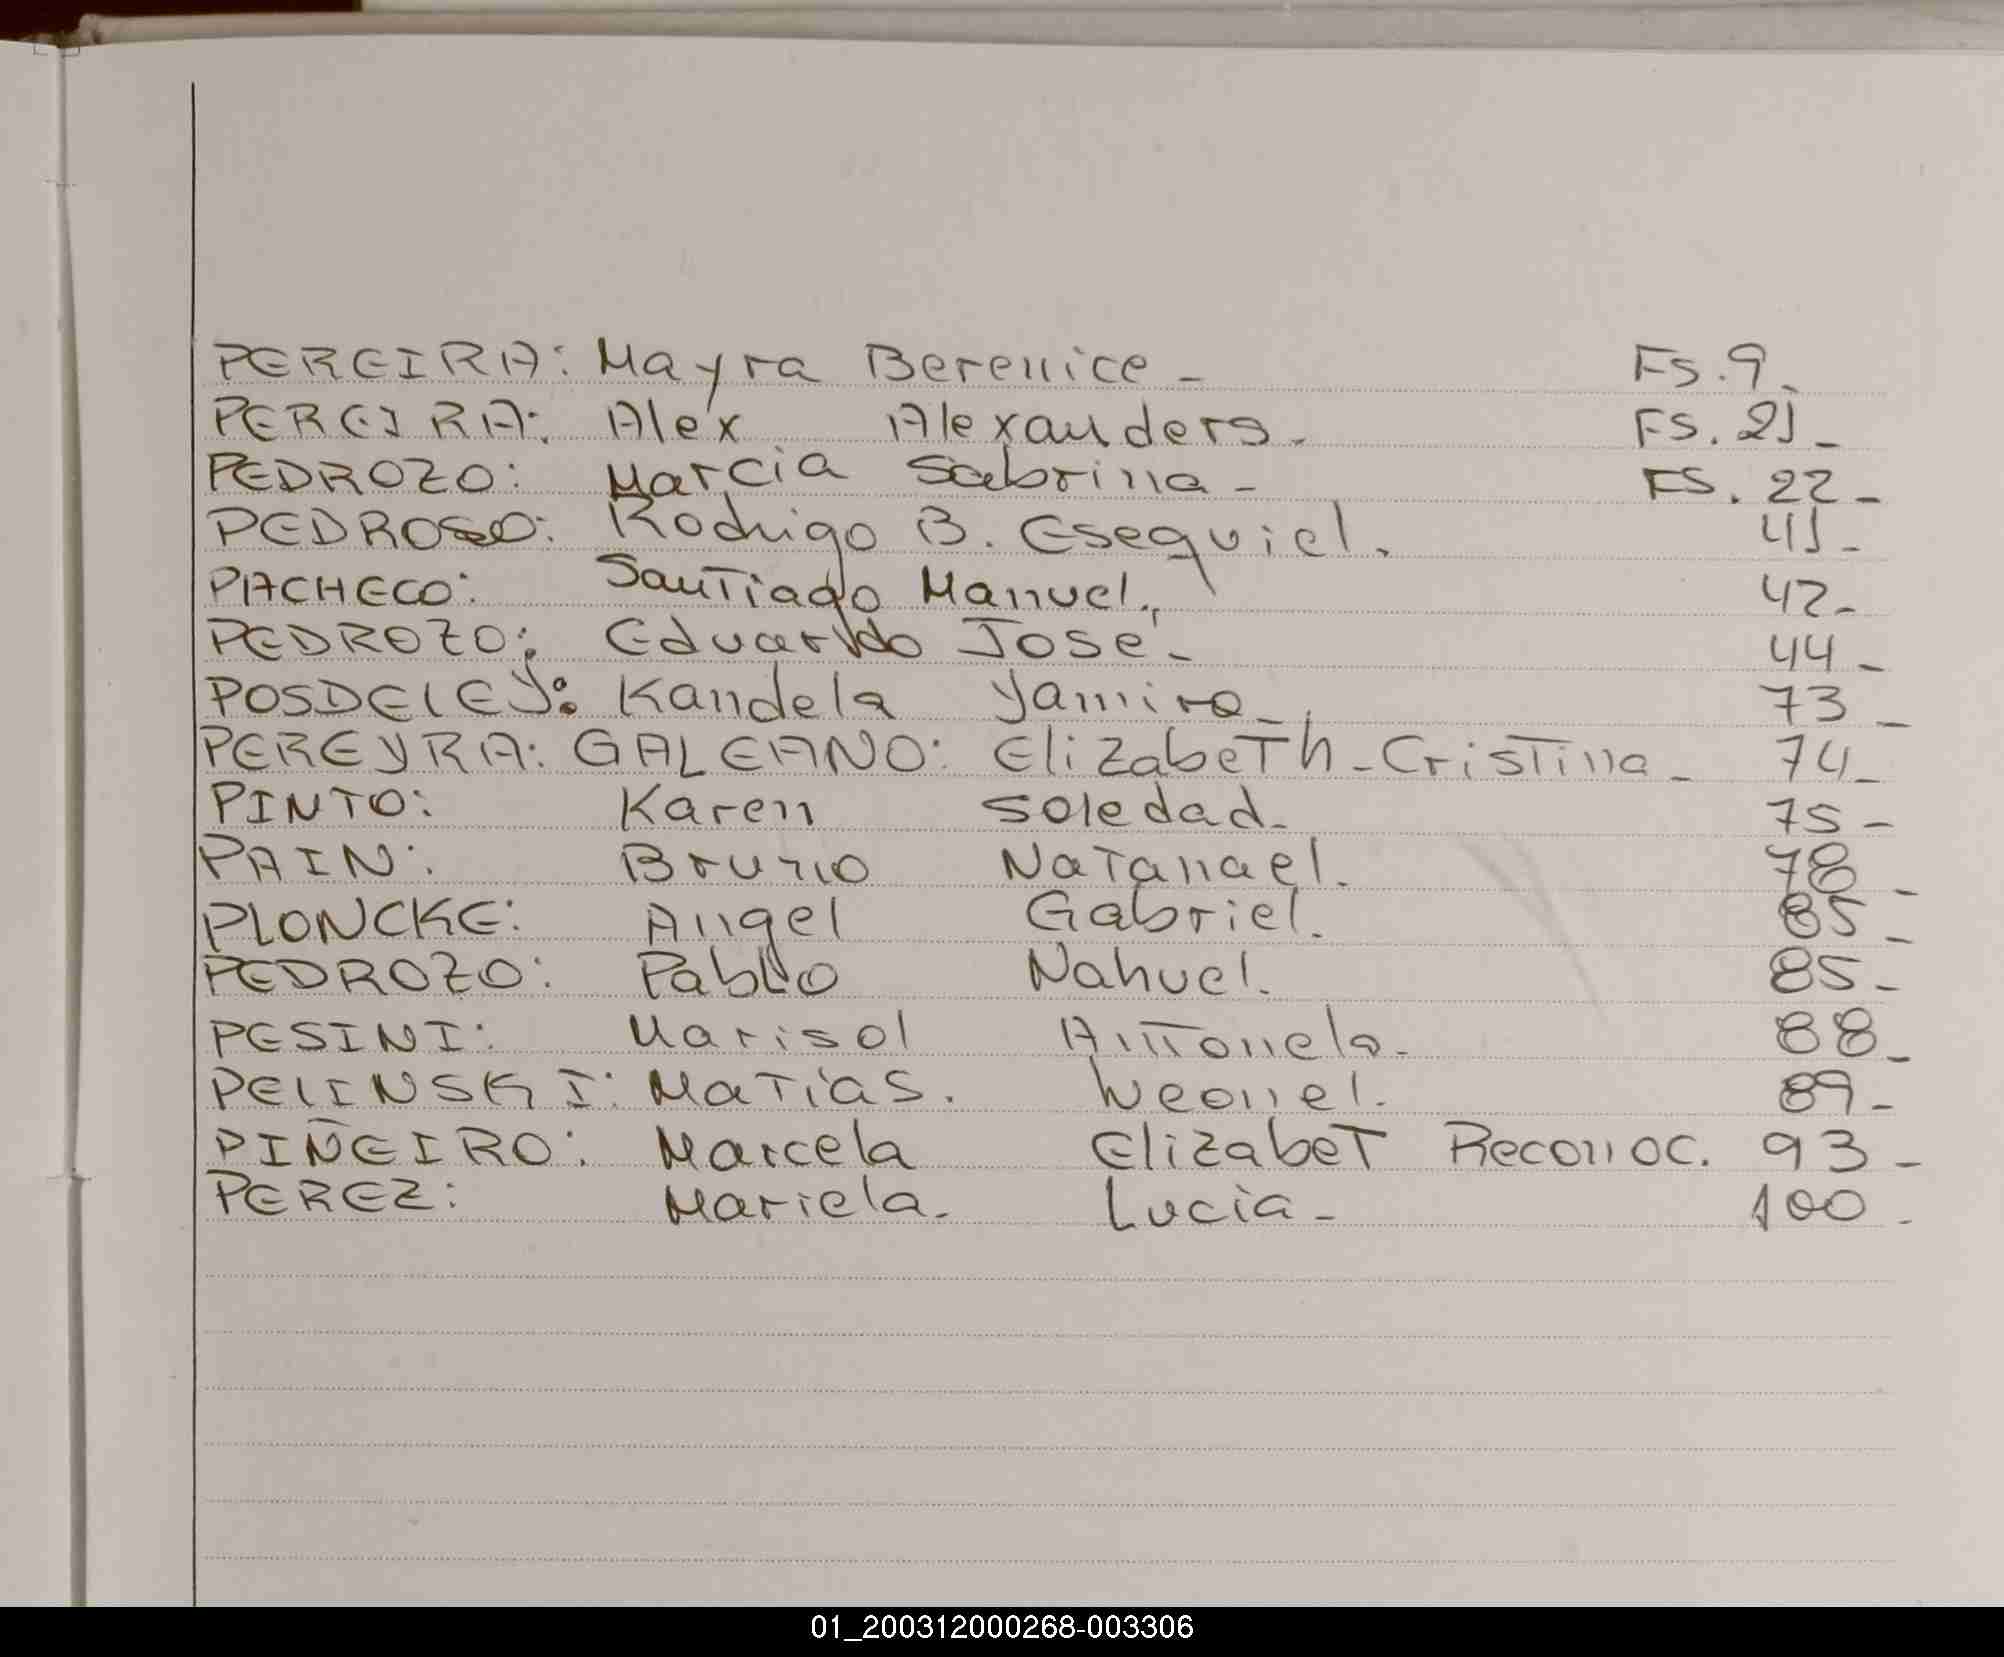 PEREIRA: Mayra Berenice - Fs. 9.
PEREIRA: Alex Alexanders. Fs. 21-
PEDROZO: Marcia Sabrina - FS. 22-
PEDROSO: Rodrigo B. Esequiel. 41-
PACHECO: Santiago Manuel. 42-
PEDROZO: Eduardo José - 44-
POSDELEY: Kandela Yamira - 73-
PEREYRA: GALEANO: Elizabeth - Cristina - 74-
PINTO: Karen Soledad - 75-
PAIN: Bruno Natanael. 78-
PLONCKE: Angel Gabriel. 85-
PEDROZO: Pablo Nahuel. 85-
PESINI: Marisol Antonela - 88-
PELINSKI: Matías. Leonel. 89-
PIÑEIRO: Marcela Elizabet Reconoc. 93-
PEREZ: Mariela. Lucía - 100-
01_200312000268-003306